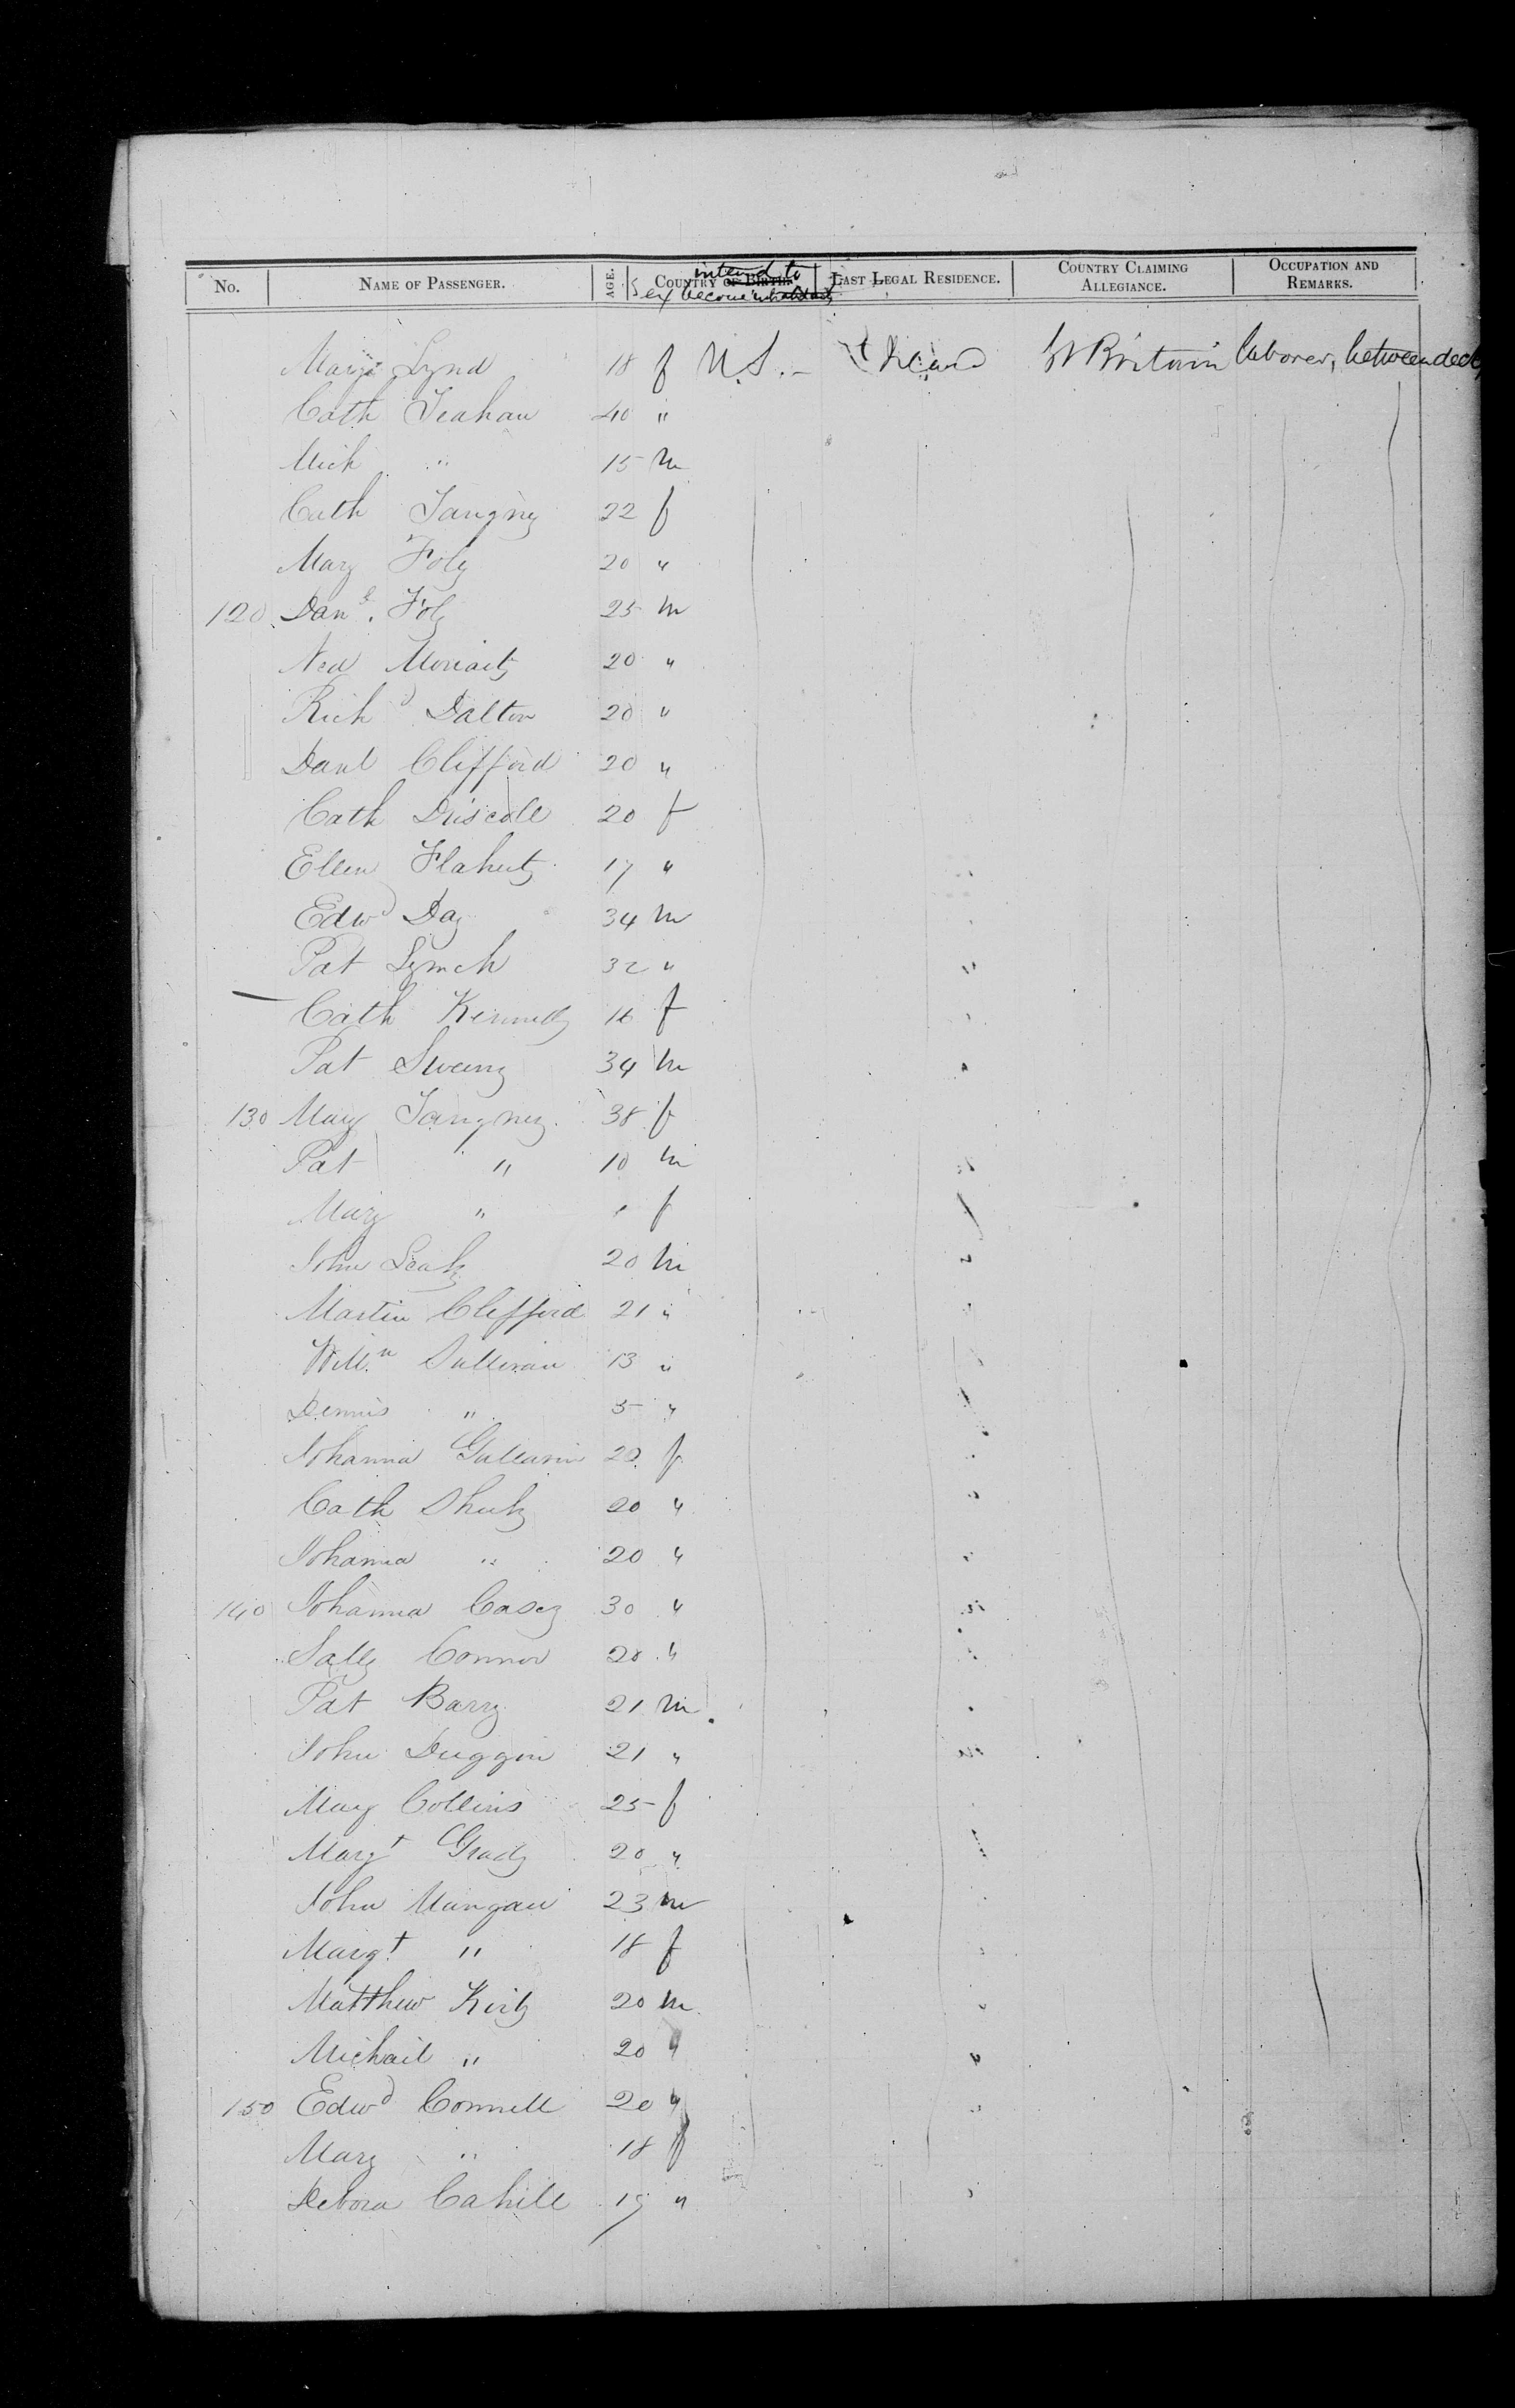 No. NAME OF PASSENGER. AGE. Sex COUNTRY OF BIRTH. intend to become inhabitants LAST LEGAL RESIDENCE. COUNTRY CLAIMING ALLEGIANCE. OCCUPATION AND REMARKS.
Mary Lynd 18 f U.S. - Ireland Gt Britain laborer, between decks
Cath Teahan 40 "
Mich " 15 m
Cath Tangny 22 f
Mary Foly 20 "
120 Danl. Foly 25 m
Ned Moriarty 20 "
Richd Dalton 20 "
Danl Clifford 20 "
Cath Driscoll 20 f
Ellen Flaherty 17 "
Edwd Day 34 m
Pat Lynch 32 "
Cath Kennelly 16 f
Pat Sweeny 34 m
130 Mary Tangney 38 f
Pat " 10 m
Mary " f
John Leahy 20 m
Martin Clifford 21 "
Willm Sullivan 13 "
Dennis " 5 "
Johanna 20 f
Cath Sheehy 20 "
Johanna " 20 "
140 Johanna Casey 30 "
Sally Connor 20 "
Pat Barry 21 m
John Duggin 21 "
Mary Collins 25 f
Margt Grady 20 "
John Mangan 23 m
Margt " 18 f
Matthew Kirby 20 m
Michail " 20 "
150 Edwd Connell 20 "
Mary " 18 f
Debora Cahill 19 "